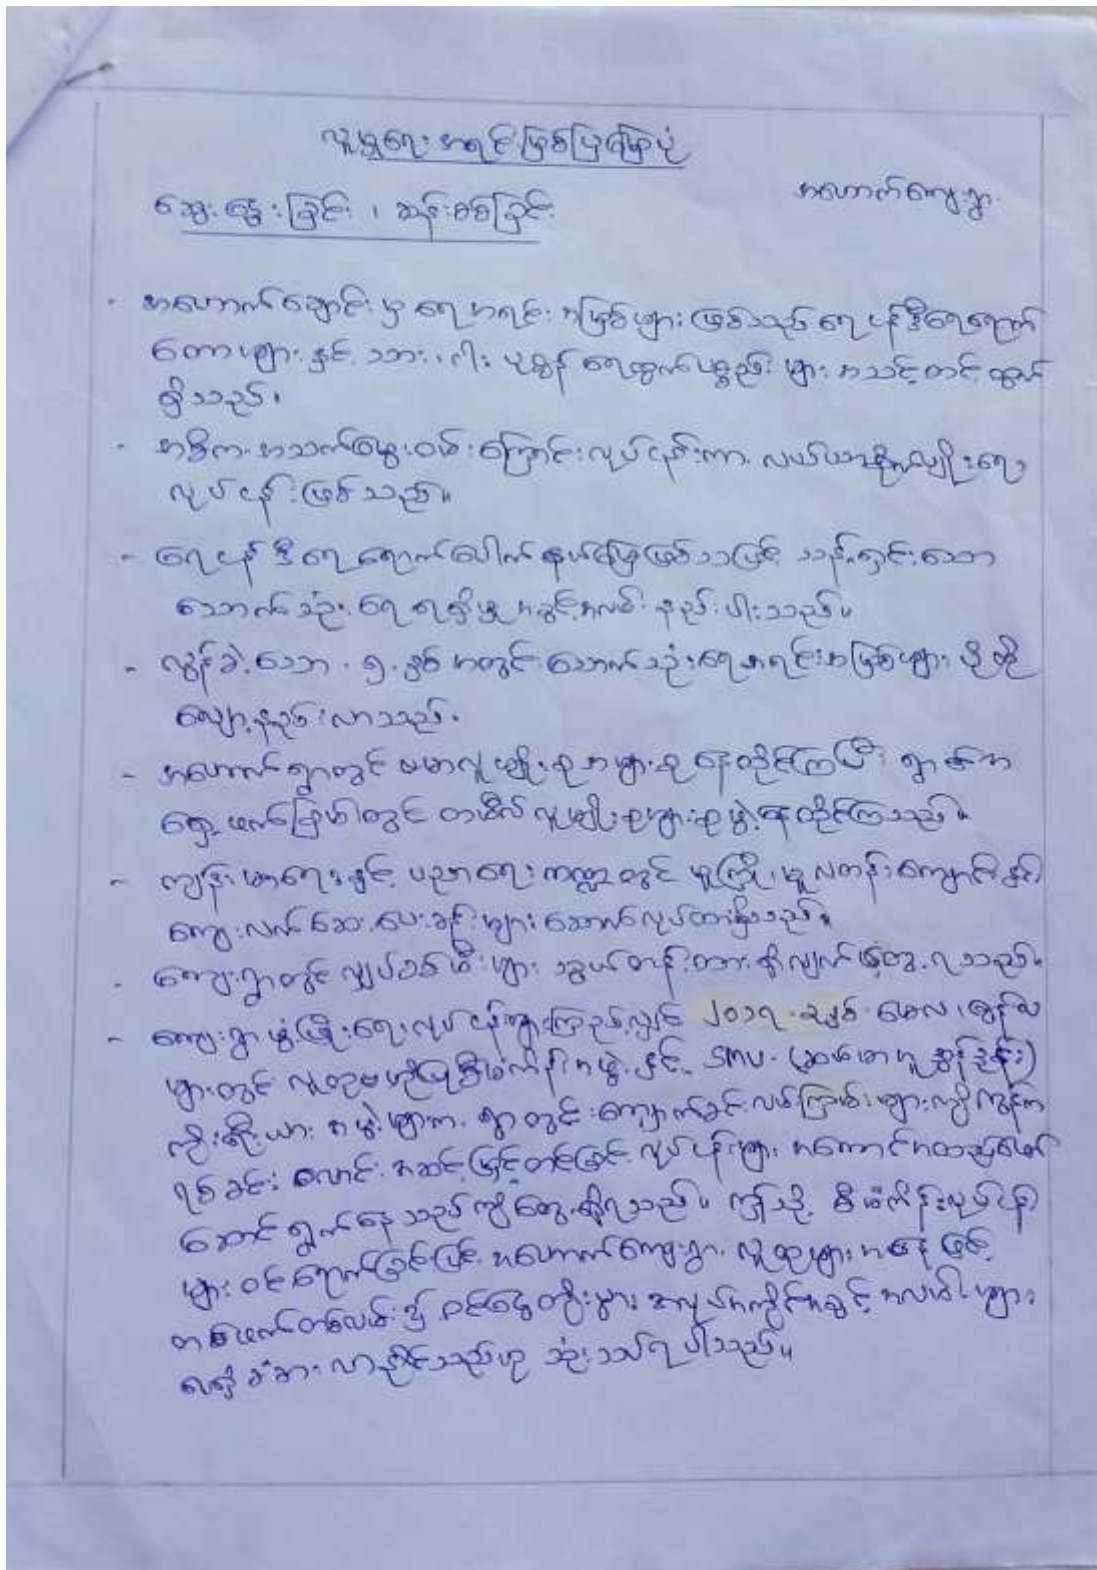 လူမှုရေး အရင်းအမြစ်ပြမြေပုံ
အဟောက်ကျေးရွာ
ဆွေးနွေးခြင်း ၊ ဆန်းစစ်ခြင်း
- အဟောက်ချောင်းမှ ရေအရင်းအမြစ်များ ဖြစ်သည့် ရေငန်ဒီရေရောက်
တောများ နှင့် သား၊ ငါး ပုစွန် ရေထွက်ပစ္စည်းများ အသင့်တင့် ထွက်
ရှိသည်။
- အဓိက အသက်မွေးဝမ်းကြောင်းလုပ်ငန်းကာ လယ်ယာစိုက်ပျိုးရေး
လုပ်ငန်းဖြစ်သည်။
- ရေငန်ဒီရေရောက်ပေါက်နယ်မြေဖြစ်သဖြင့် သန့်ရှင်းသော
သောက်သုံးရေ ရရှိမှု အခွင့်အလမ်း နည်းပါးသည်။
- လွန်ခဲ့သော ၅ နှစ် အတွင်း သောက်သုံးရေအရင်းအမြစ်များ ပိုတို့
လျော့နည်းလာသည်။
- အဟောက်ရွာတွင် ဗမာလူမျိုးစု အများစု နေထိုင်ကြပြီး ရွာ၏
ရှေ့ဖက်ခြမ်းတွင် တမီလ်လူမျိုးစုများစုဖွဲ့နေထိုင်ကြသည်။
- ကျန်းမာရေးနှင့် ပညာရေးကဏ္ဍတွင် မူကြို၊ မူလတန်းကျောင်းနှင့်
ကျေးလက်ဆေးပေးခန်းများ ဆောက်လုပ်ထားရှိသည်။
- ကျေးရွာတွင် လျှပ်စစ်မီးများ သွယ်တန်းထားရှိလျက် တွေ့ရသည်။
- ကျေးရွာဖွံ့ဖြိုးရေးလုပ်ငန်းများကြည့်လျှင် ၂၀၁၇ ခုနှစ် မေလ၊ ဇွန်လ
များတွင် လူထုဗဟိုပြုစီမံကိန်းအဖွဲ့ နှင့် SMV (ဆမ်မာယူ ထွန်းခိုင်း)
ကိုးရီးယား အဖွဲ့များက ရွာတွင်း ကျောက်ခင်းလမ်းကြမ်းများကို ကွန်က
ရစ်ခင်း လောင်း အဆင့်မြှင့်တင်ခြင်း လုပ်ငန်းများ အကောင်အထည်ဖော်
ဆောင်ရွက်နေသည်ကို တွေ့ရှိရသည်။ ဤသို့ စီမံကိန်းလုပ်ငန်း
များ ဝင်ရောက်ခြင်းဖြင့် အဟောက်ကျေးရွာ လူထုများ အနေဖြင့်
တစ်ဖက်တစ်လမ်းမှ ဝင်ငွေတိုးပွား အလုပ်အကိုင်အခွင့်အလမ်းများ
ရရှိ ခံစားလာနိုင်သည်ဟု သုံးသပ်ရပါသည်။